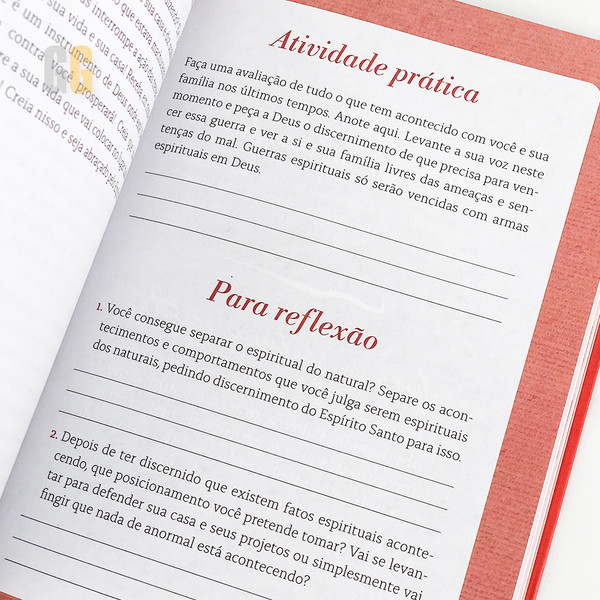 sua vida e sua casa! Receba
interrompe a ação do
é um instrumento de Deus
contra você prosperará! Creia
e a sua vida que vai colocar
! Creia nisso e seja abraçado
GG
Atividade prática
Faça uma avaliação de tudo o que tem acontecido com você e sua
família nos últimos tempos. Anote aqui. Levante a sua voz neste
momento e peça a Deus o discernimento de que precisa para ven-
cer essa guerra e ver a si e sua família livres das ameaças e sen-
tenças do mal. Guerras espirituais só serão vencidas com armas
espirituais em Deus.
Para reflexão
1. Você consegue separar o espiritual do natural? Separe os acon-
tecimentos e comportamentos que você julga serem espirituais
dos naturais, pedindo discernimento do Espírito Santo para isso.
2. Depois de ter discernido que existem fatos espirituais aconte-
cendo, que posicionamento você pretende tomar? Vai se levan-
tar para defender sua casa e seus projetos ou simplesmente vai
fingir que nada de anormal está acontecendo?